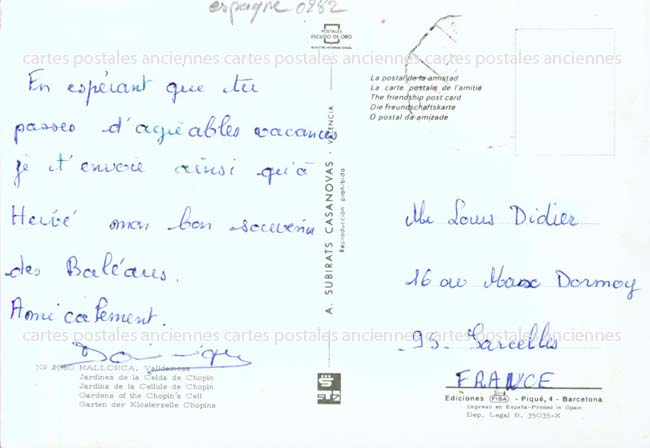 espagne 0282
POSTALES
ESCUDO DE ORO
cartes postales anciennes cartes postales anciennes cartes postales anciennes
En espérant que tu
passes d'agréables vacances
je t'envoie ainsi qu'à
Hervé mon bon souvenir
des Baléares.
Amicalement.
Dominique
A. SUBIRATS CASANOVAS - VALENCIA
Reproducción prohibida
La postal de la amistad
La carte postale de l'amitié
The friendship post card
Die Freundschaftskarte
O postal da amizade
Mr Louis Didier
16 av Marx Dormoy
-95- Sarcelles
FRANCE
cartes postales anciennes cartes postales anciennes cartes postales anciennes
MALLORCA. Valldemosa
Jardines de la Celda de Chopin
Jardins de la Cellule de Chopin
Gardens of the Chopin's Cell
Garten der Klosterzelle Chopins
Ediciones FISA - Piqué, 4 - Barcelona
Impreso en España-Printed in Spain
Dep. Legal B. 35035-X